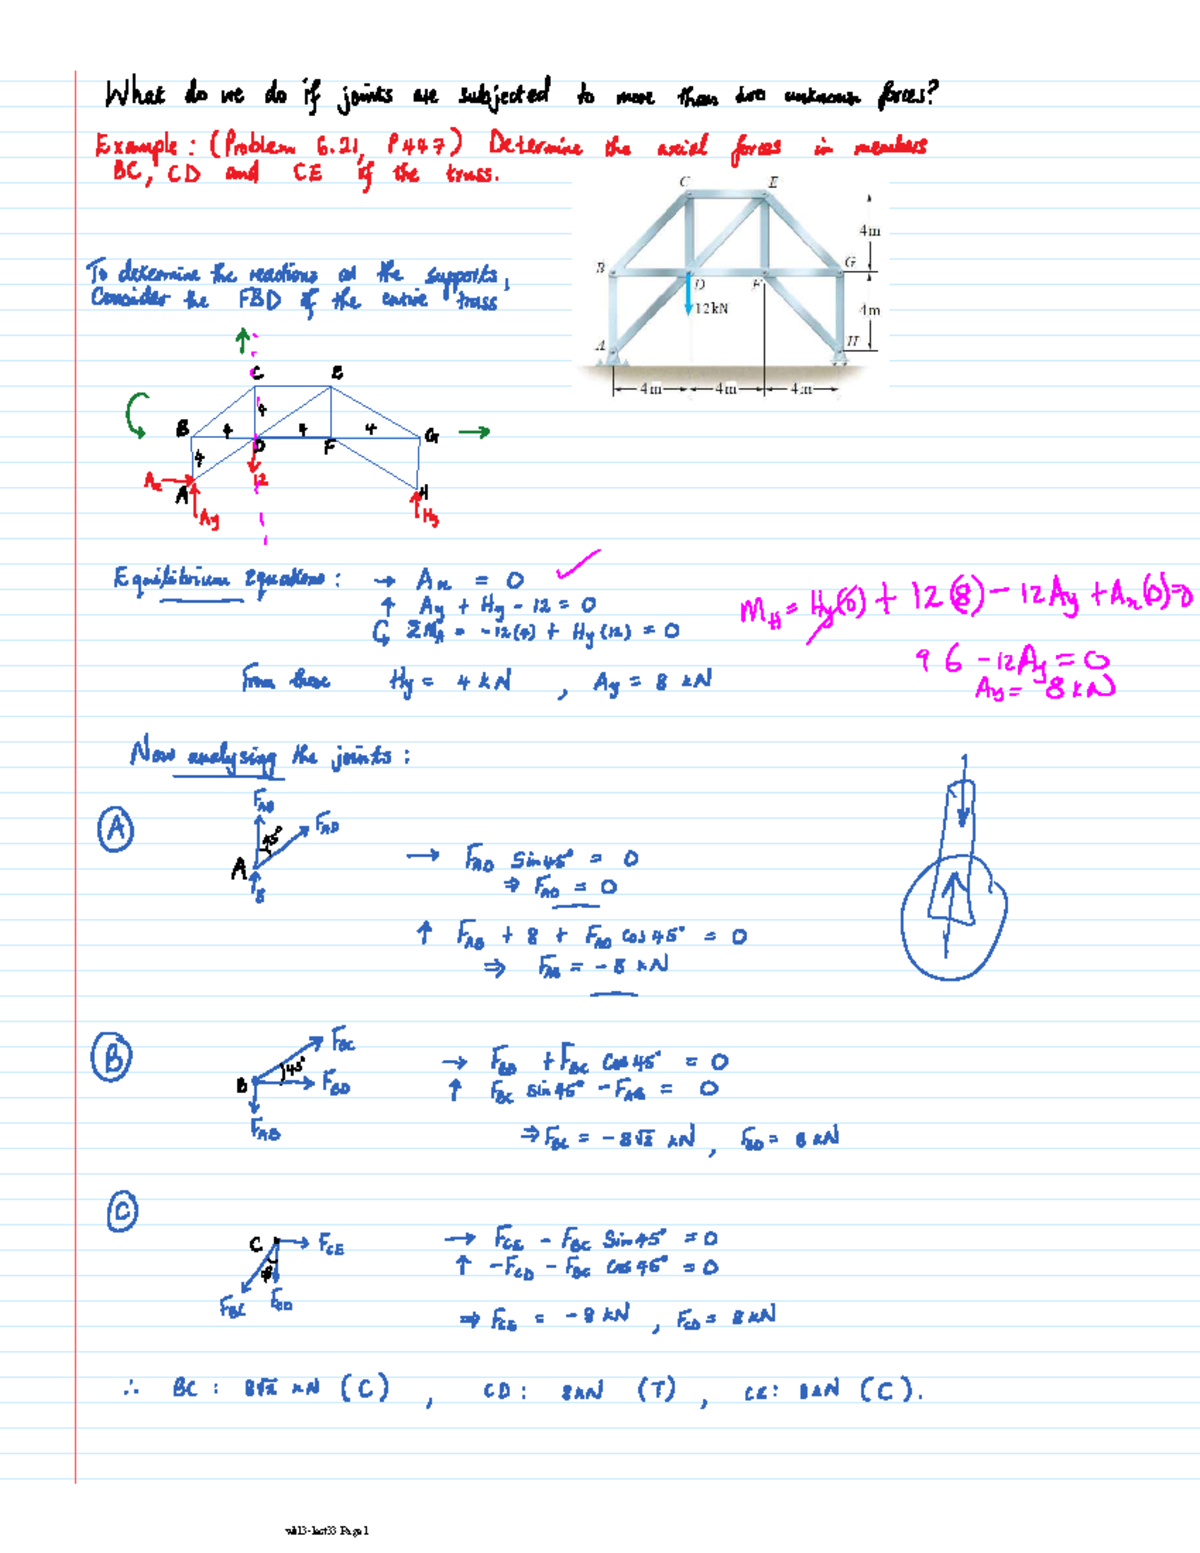 What do we do if joints are subjected to more than two unknown forces?
Example: (Problem 6.21, P447) Determine the axial forces in members
BC, CD and CE of the truss.
C E
4m
B D F G
12kN
4m
A H
4m 4m 4m
To determine the reactions at the supports,
Consider the FBD of the entire truss
C E
4
B 4 D 4 F 4 G
4
Ax 12
A H
Ay Hy
Equilibrium Equations: → Ax = 0
↑ Ay + Hy - 12 = 0
ΣMA = -12(4) + Hy(12) = 0
From these Hy = 4 kN , Ay = 8 kN
MH = Hy(0) + 12(8) - 12Ay + Ax(0)=0
96 - 12Ay = 0
Ay = 8 kN
Now analysing the joints:
A
FAB
45° FAD
A
8
→ FAD Sin45° = 0
⇒ FAD = 0
↑ FAB + 8 + FAD cos45° = 0
⇒ FAB = -8 kN
B
FBC
45°
B FBD
FAB
→ FBD + FBC Cos45° = 0
↑ FBC sin45° - FAB = 0
⇒ FBC = -8√2 kN , FBD = 8 kN
C
C FCE
FBC FCD
→ FCE - FBC Sin45° = 0
↑ -FCD - FBC cos45° = 0
⇒ FCE = -8 kN , FCD = 8 kN
∴ BC: 8√2 kN (C) , CD: 8kN (T) , CE: 8kN (C).
wk13-lect33 Page 1